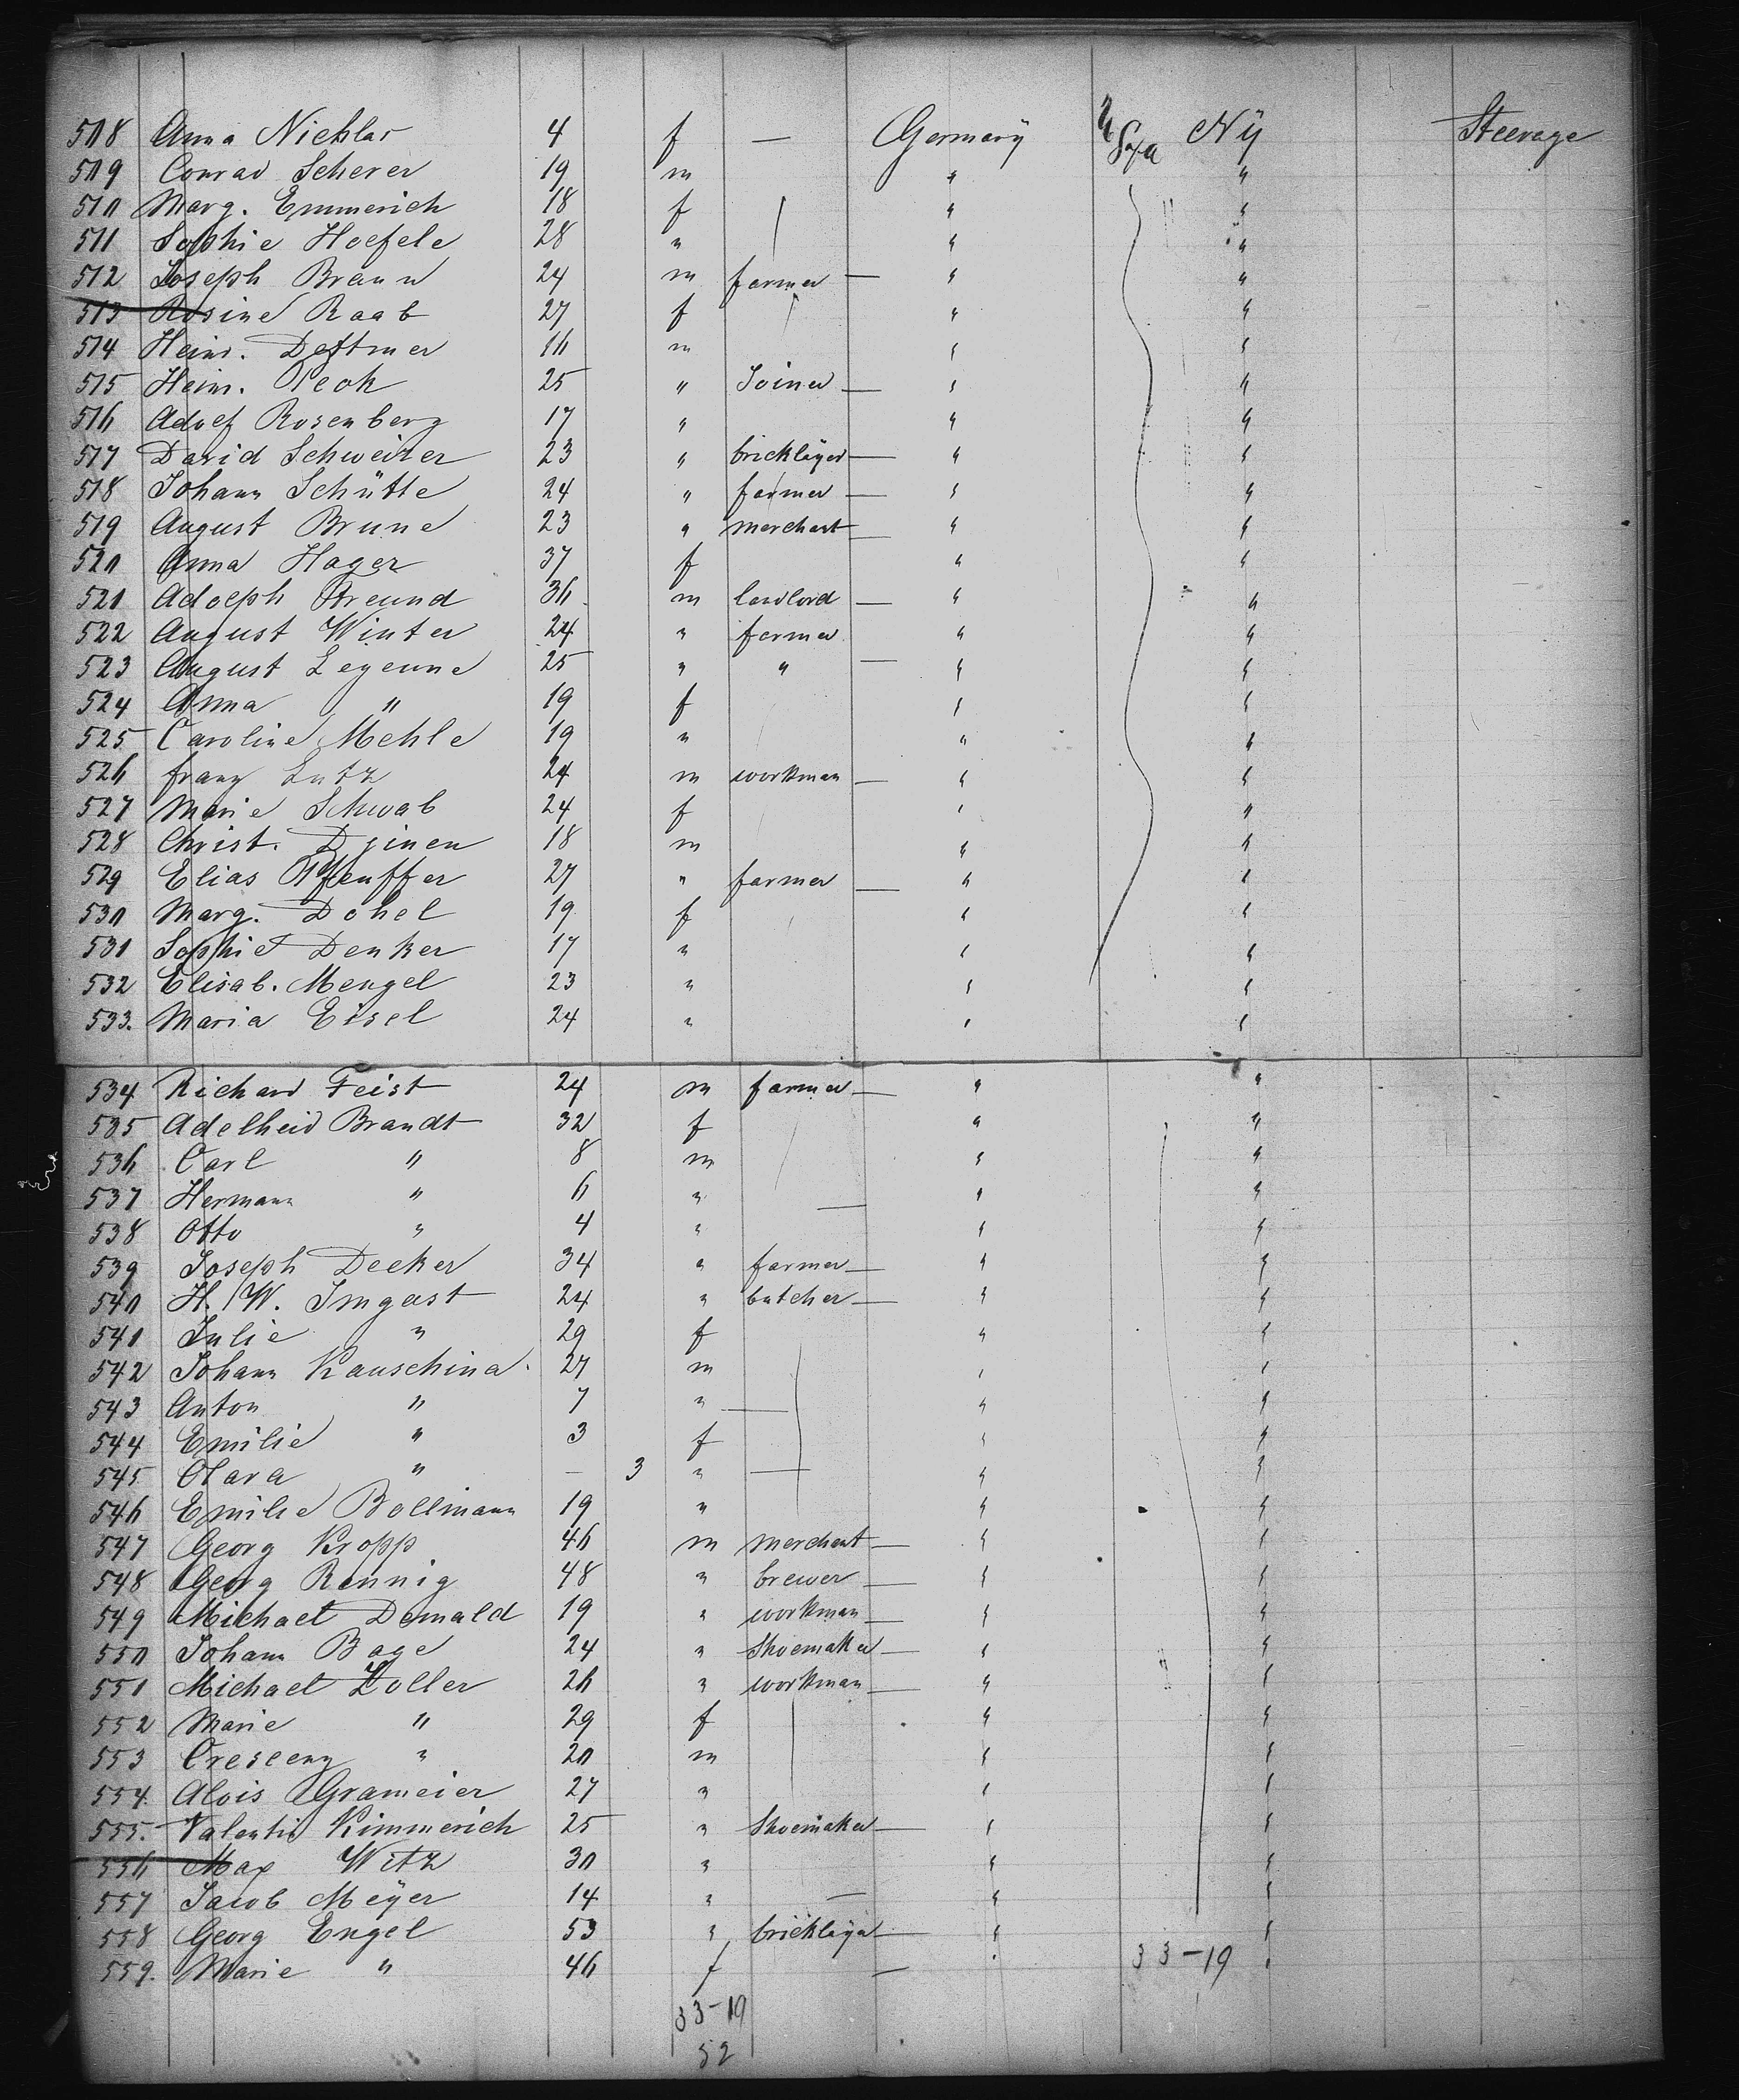 508 Anna Nicklas 4 f — Germany USA NY Steerage
509 Conrad Scherer 19 m " "
510 Marg. Emmerich 18 f " "
511 Sophie Hoefele 28 " " "
512 Joseph Braun 24 m farmer — " "
513 Rosine Raab 27 f " "
514 Heinr. Dettmer 16 m " "
515 Heinr. Peck 25 " Joiner — " "
516 Adolf Rosenberg 17 " " "
517 David Schweizer 23 " bricklayer — " "
518 Johann Schütte 24 " farmer — " "
519 August Brune 23 " merchant — " "
520 Anna Hager 37 f " "
521 Adolph Freund 36 m landlord — " "
522 August Winter 24 " farmer " "
523 August Lejeune 25 " " — " "
524 Anna " 19 f " "
525 Caroline Mehle 19 " " "
526 Franz Lutz 24 m workman — " "
527 Marie Schwab 24 f " "
528 Christ. 18 m " "
529 Elias Pfeuffer 27 " farmer — " "
530 Marg. Dohel 19 f " "
531 Sophie Denker 17 " " "
532 Elisab. Mengel 23 " " "
533. Maria Eisel 24 " " "
534 Richard Feist 24 m farmer — " "
535 Adelheid Brandt 32 f " "
536 Carl " 8 m " "
537 Hermann " 6 " " "
538 Otto " 4 " — " "
539 Joseph Decker 34 " farmer — " "
540 H. W. Imgast 24 " butcher — " "
541 Julie " 29 f " "
542 Johann Kauschina 27 m " "
543 Anton " 7 " — " "
544 Emilie " 3 f " "
545 Clara " — 3 " — " "
546 Emilie Bollmann 19 " " "
547 Georg Kropp 46 m merchant — " "
548 Georg Rennig 48 " brewer — " "
549 Michael Demald 19 " workman — " "
550 Johann Bage 24 " Shoemaker — " "
551 Michael Zoller 26 " workman — " "
552 Marie " 29 f " "
553 Crescenz " 20 m " "
554. Alois Grameier 27 " " "
555. Valentin Kimmerich 25 " Shoemaker — " "
556 Max Witz 30 " " "
557 Jacob Meyer 14 " — " "
558 Georg Engel 53 " bricklayer — " "
559. Marie " 46 f — " 33-19 "
33-19
52